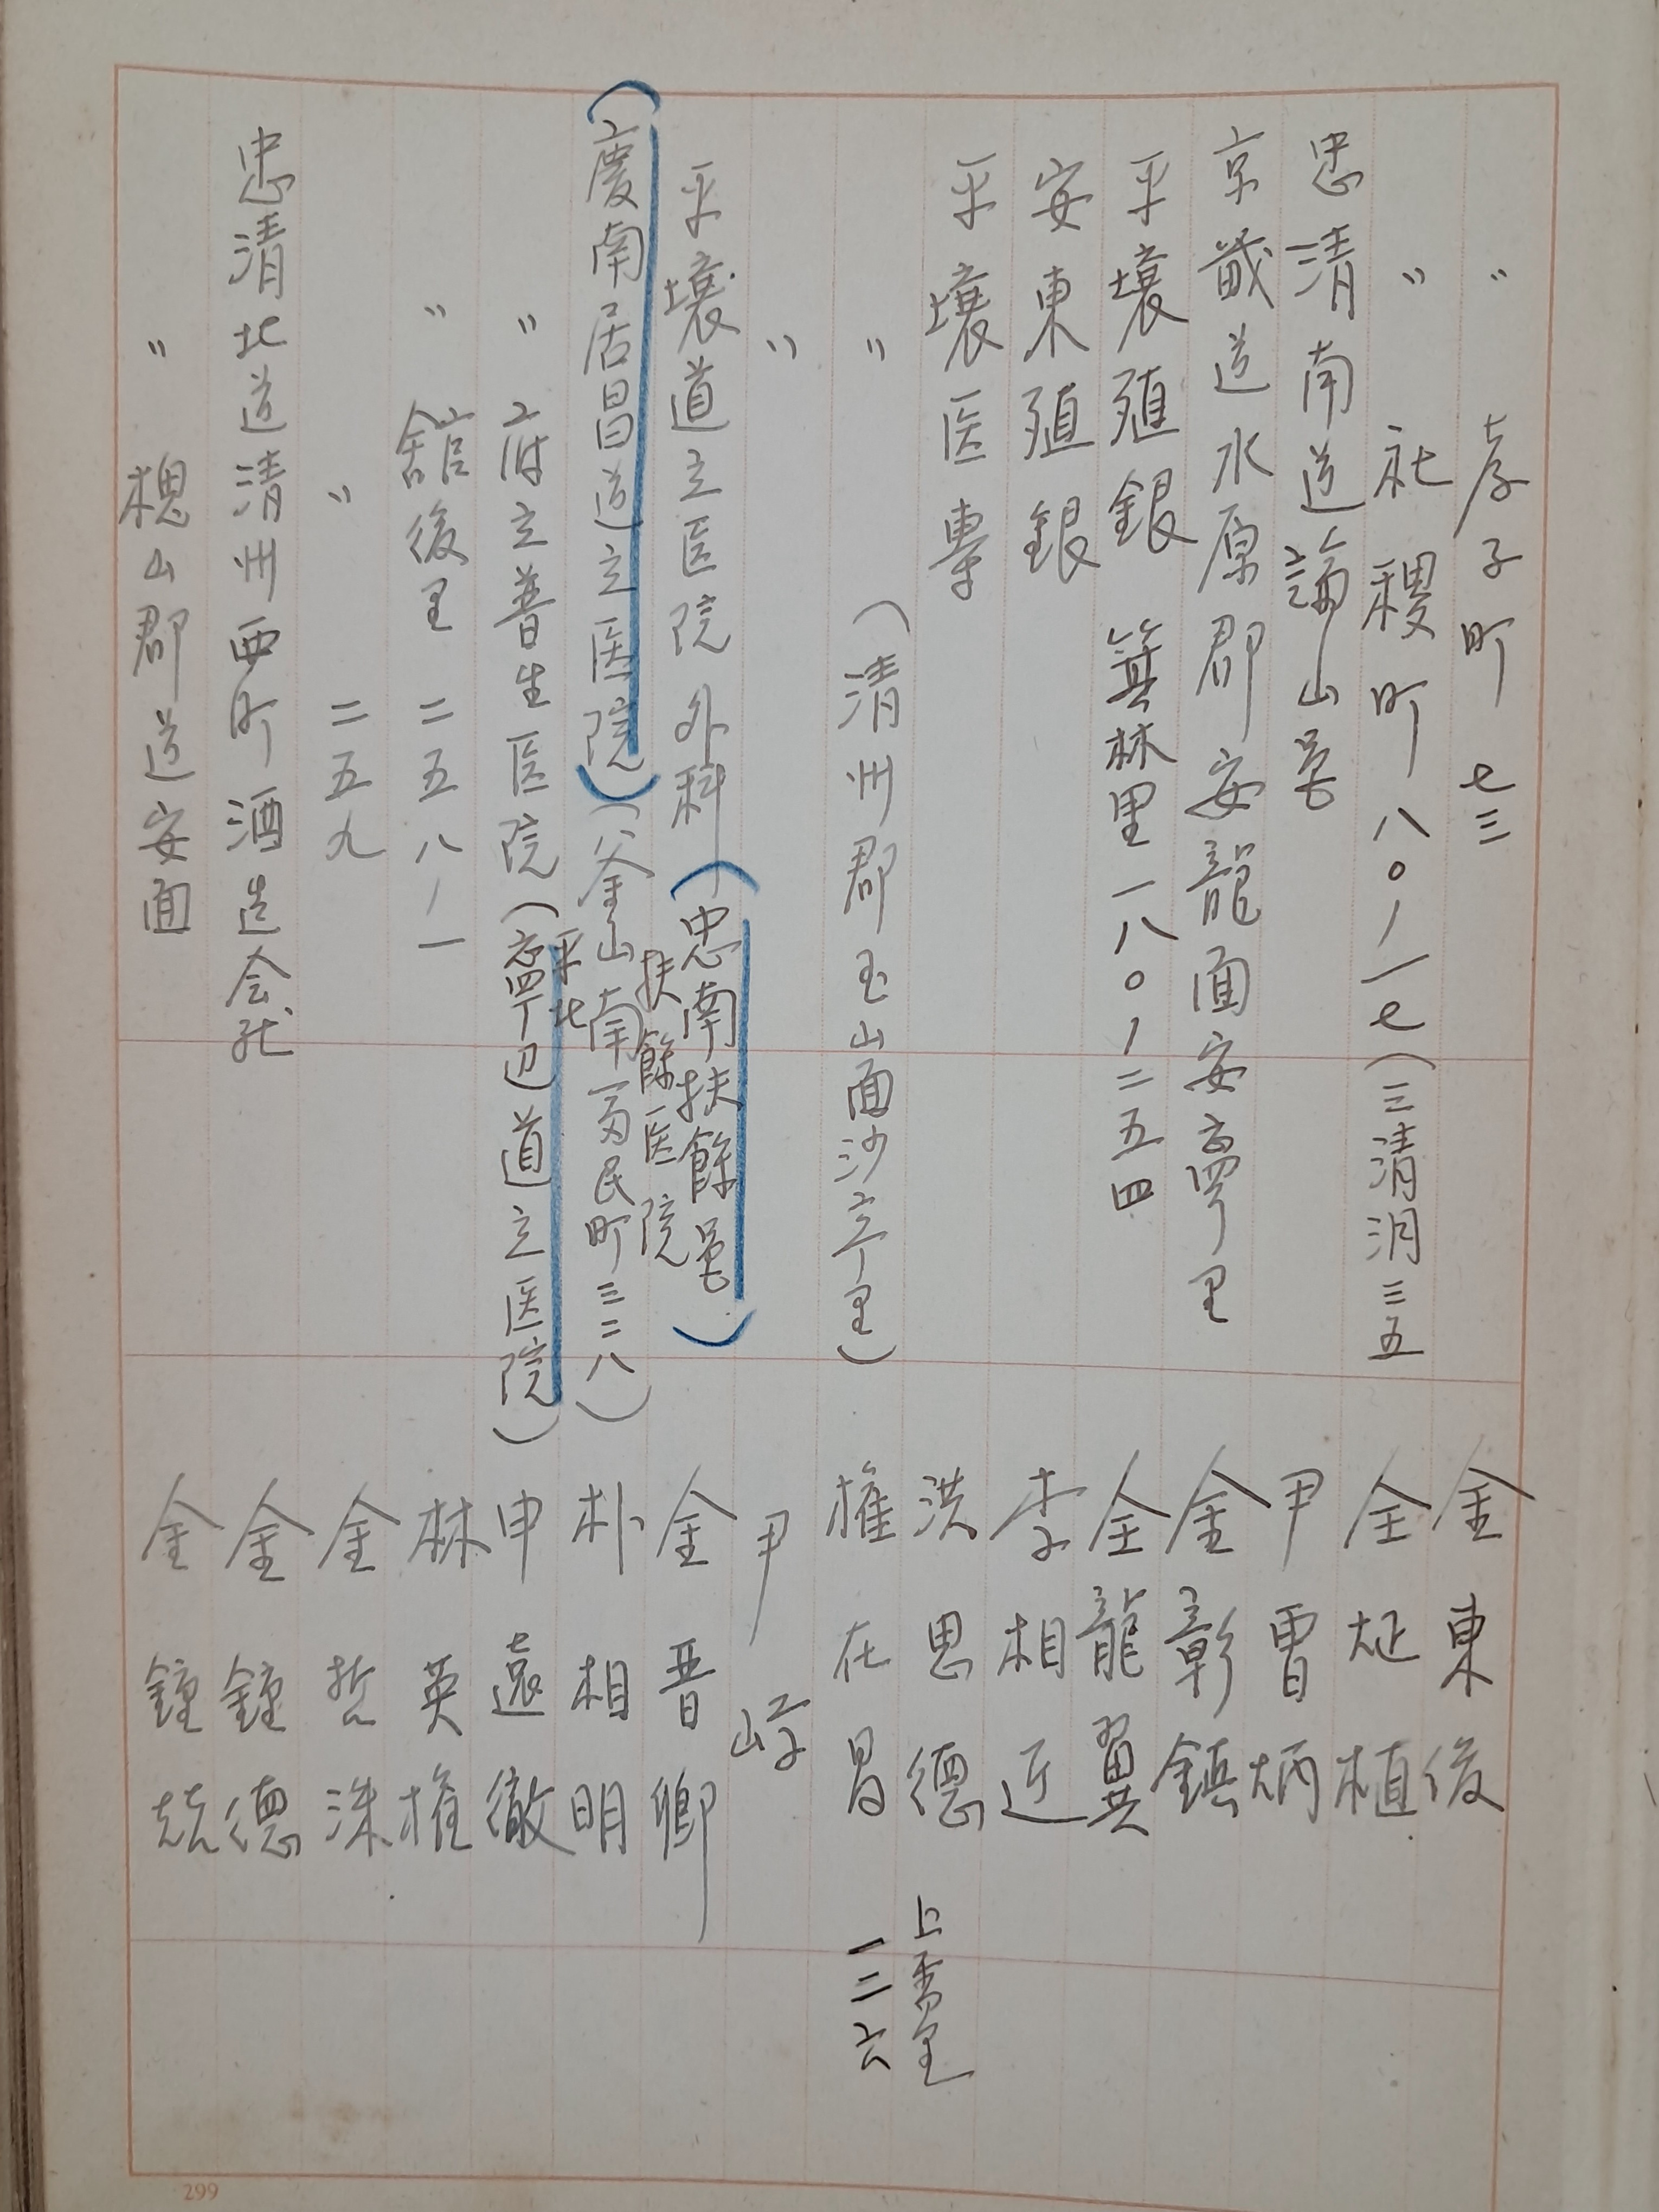 〃 孝子町 七三 金東俊
〃 社稷町 八〇ノ一七(三清洞三五 全㶳植
忠清南道論山邑 尹曺炳
京畿道水原郡安龍面安寧里 金彰鎮
平壌殖銀 箕林里一八〇ノ二五四 全龍翼
安東殖銀 李相近
平壌医専 洪思德 上需里
〃 (清州郡玉山面沙亭里) 権在昌 一二六
〃 尹
平壌道立医院 外科 (忠南扶餘邑) 金晋卿
扶餘医院
(慶南居昌道立医院)(釜山南富民町三二八) 朴相明
平北
〃 府立普生医院(寧辺道立医院) 申遠徹
〃 舘後里 二五八ノ一 林英権
〃 二五九 金哲洙
忠清北道清州西町酒造会社 金鐘德
〃 槐山郡道安面 金鐘
299